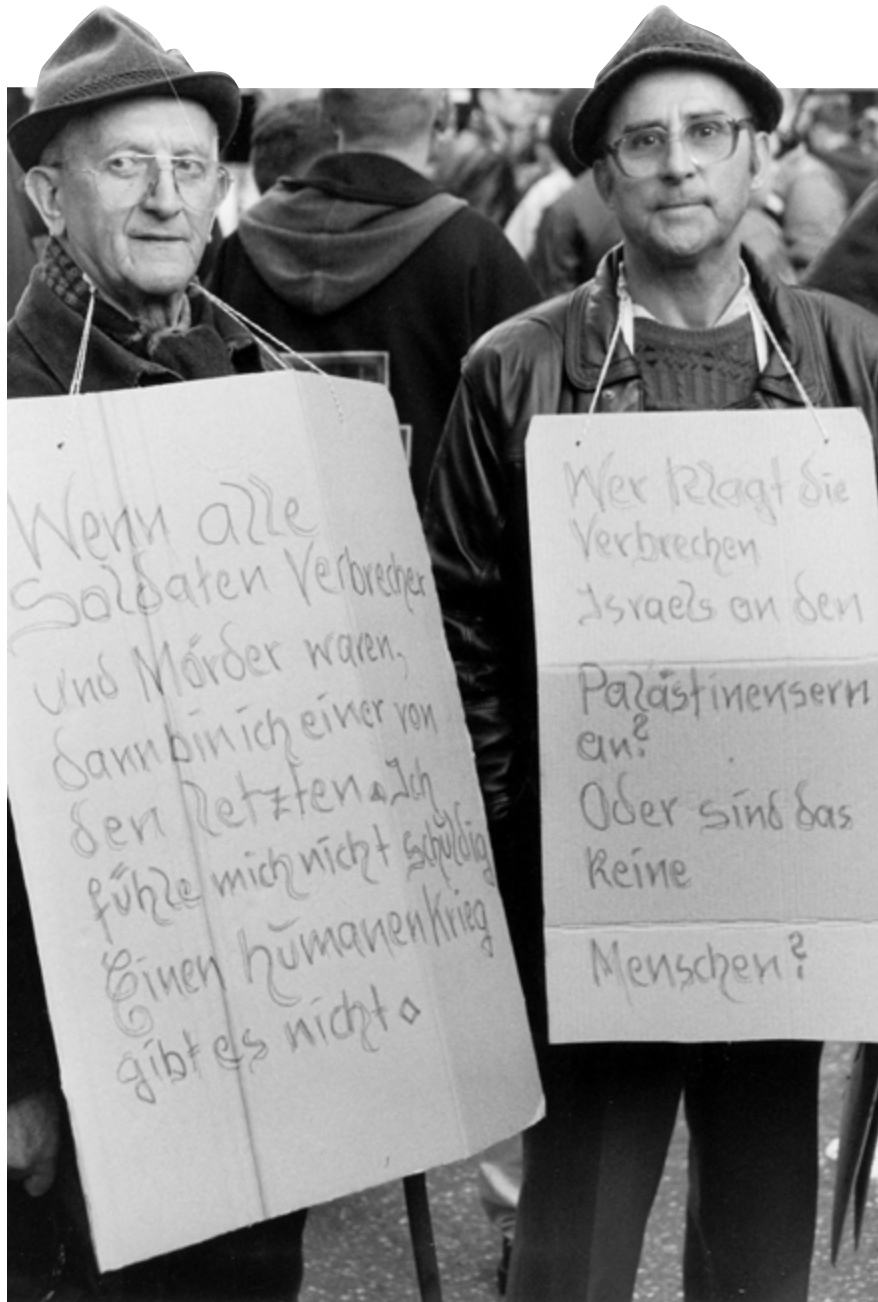 Wenn alle
Soldaten Verbrecher
und Mörder waren,
dann bin ich einer von
den letzten. Ich
fühle mich nicht schuldig
Einen humanen Krieg
gibt es nicht.
Wer klagt die
Verbrechen
Israels an den
Palästinensern
an?
Oder sind das
keine
Menschen?